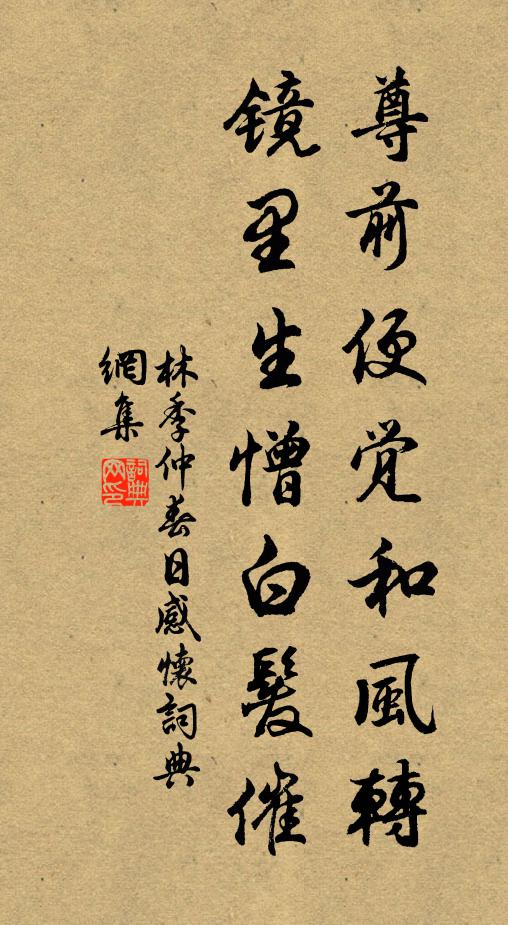 尊前便觉和風轉
镜里生憎白髮催
林季仲春日感懷詞典
網集
詞典
网印